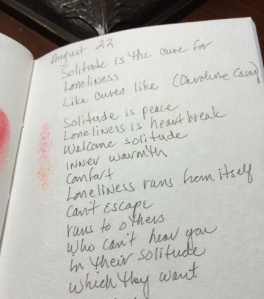 August 22
Solitude is the cure for
Loneliness
Like cures like (Caroline Casey)
Solitude is peace
Loneliness is heartbreak
Welcome solitude
inner warmth
Comfort
Loneliness runs from itself
Can't escape
runs to others
Who can't hear you
In their solitude
Which they want